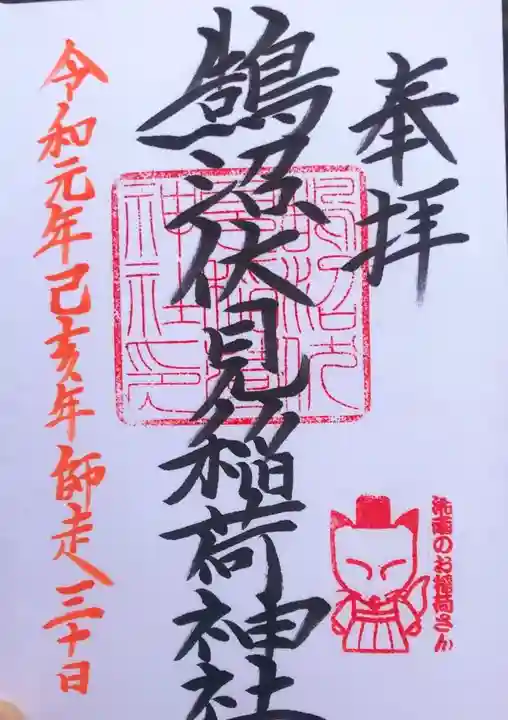 奉拝
鵠沼伏見稲荷神社
令和元年己亥年師走三十日
のお稲荷さん